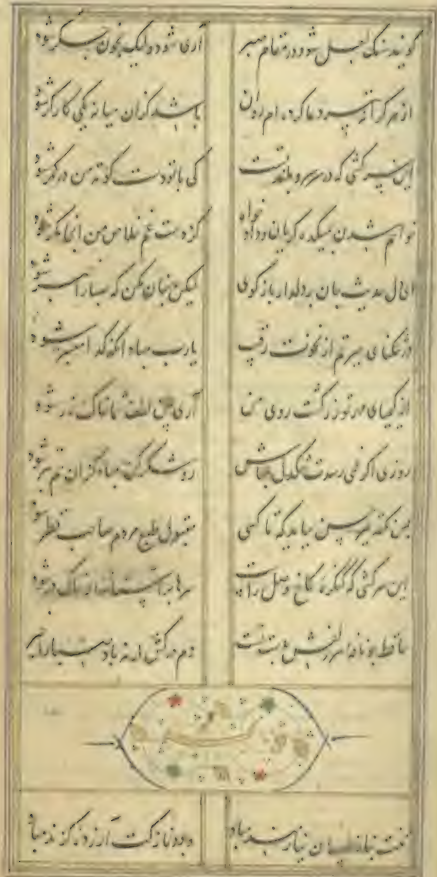 گویند سنگ لعل شود در مقام صبر آری شود ولیک بخون جگر شود
از هر کرانه تیر دعا کرده ام روان باشد کزان میانه یکی کارگر شود
این سرکشی که در سر سرو بلند تست کی با تو دست کوته من در کمر شود
خواهم شدن بمیکده گریان و دادخواه کز دست غم خلاص من آنجا مگر شود
ای دل حدیث جان بر دلدار باز گوی لیکن چنان مکن که صبا را خبر شود
در تنگنای حیرتم از نخوت رقیب یارب مباد آنکه گدا معتبر شود
از کیمیای مهر تو زر گشت روی من آری بیمن لطف شما خاک زر شود
روزی اگر غمی رسدت تنگدل مباش رو شکر کن مباد کزان هم بتر شود
بس نکته غیر حسن بباید که تا کسی مقبول طبع مردم صاحب نظر شود
این سرکشی که کنگره کاخ وصل راست سرها بر آستانه او خاک در شود
حافظ چو نافه سر زلفش بدست تست دم درکش ار نه باد صبا را خبر
تنت بناز طبیبان نیازمند مباد وجود نازکت آزرده گزند مباد